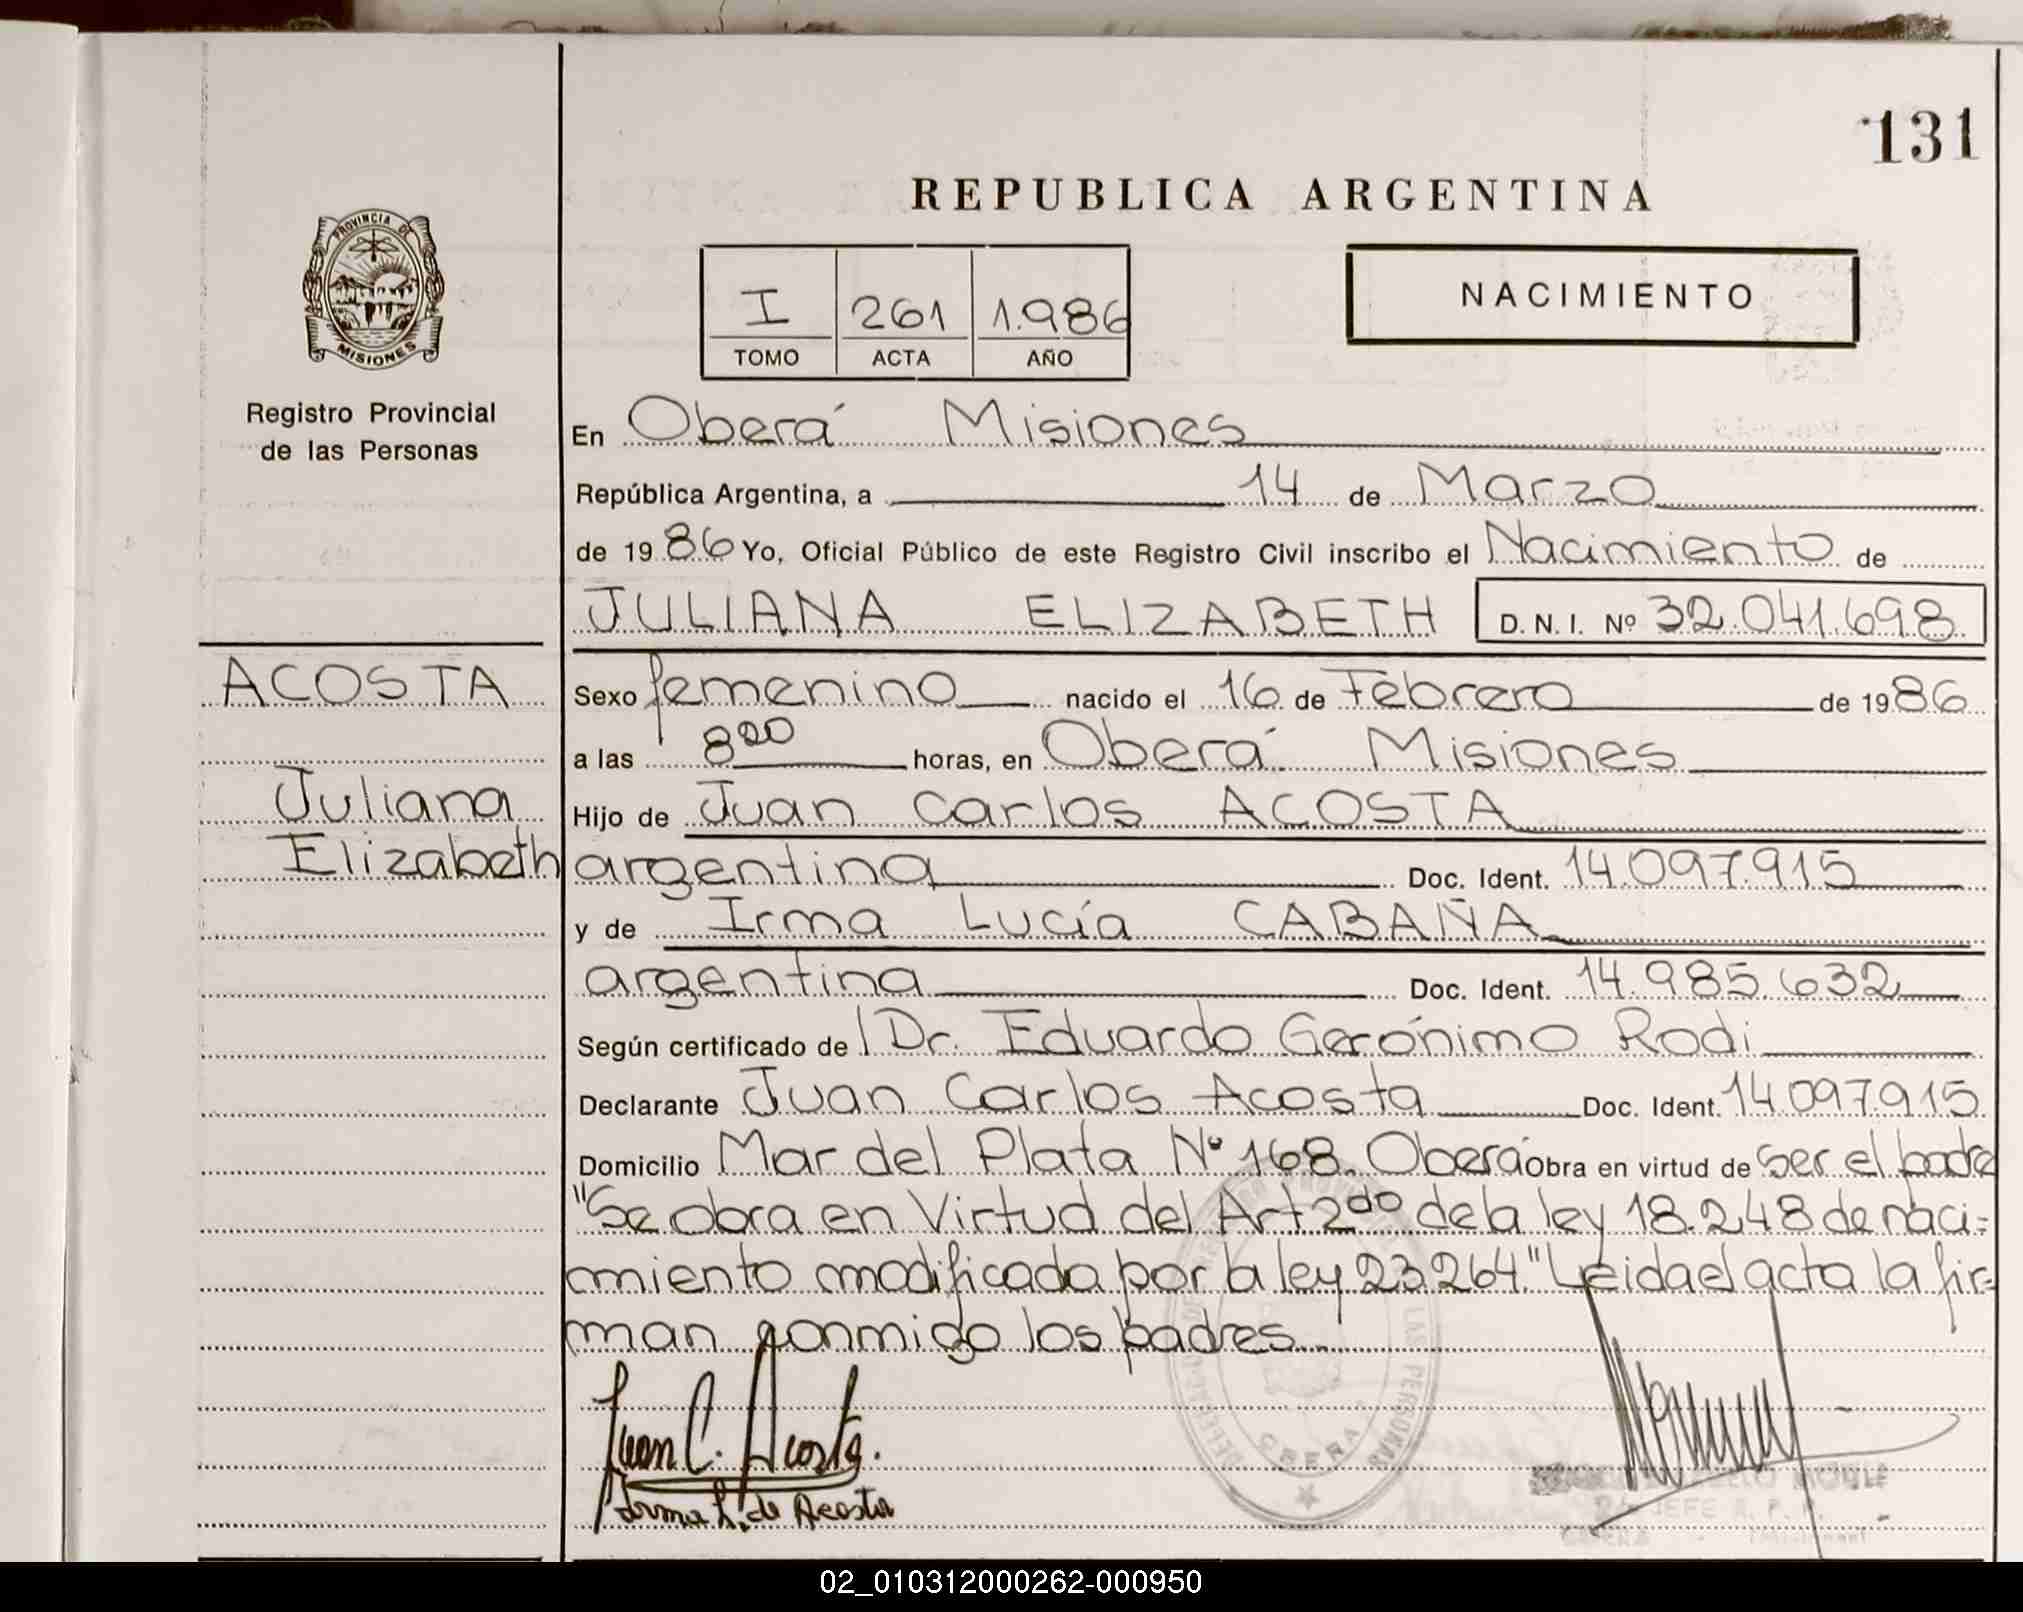 131
REPUBLICA ARGENTINA
PROVINCIA DE
MISIONES
Registro Provincial
de las Personas
I 261 1.986
TOMO ACTA AÑO
NACIMIENTO
En Oberá Misiones
República Argentina, a 14 de Marzo
de 1986 Yo, Oficial Público de este Registro Civil inscribo el Nacimiento de
JULIANA ELIZABETH D. N. I. Nº 32.041.698
ACOSTA
Juliana
Elizabeth
Sexo femenino nacido el 16 de Febrero de 1986
a las 8 20 horas, en Oberá Misiones
Hijo de Juan Carlos ACOSTA
argentina Doc. Ident. 14.097.915
y de Irma Lucía CABAÑA
argentina Doc. Ident. 14.985.632
Según certificado de l Dr. Eduardo Gerónimo Rodi
Declarante Juan Carlos Acosta Doc. Ident. 14.097.915
Domicilio Mar del Plata Nº 168. Oberá Obra en virtud de ser el padre
"Se obra en Virtud del Art 2do de la ley 18.248 de naci=
miento modificada por la ley 23.264." Leida el acta la fir=
man conmigo los padres.
Juan C. Acosta.
Irma L. de Acosta
LAS PERSONAS
OBERA
JEFE R. P. P.
02_010312000262-000950